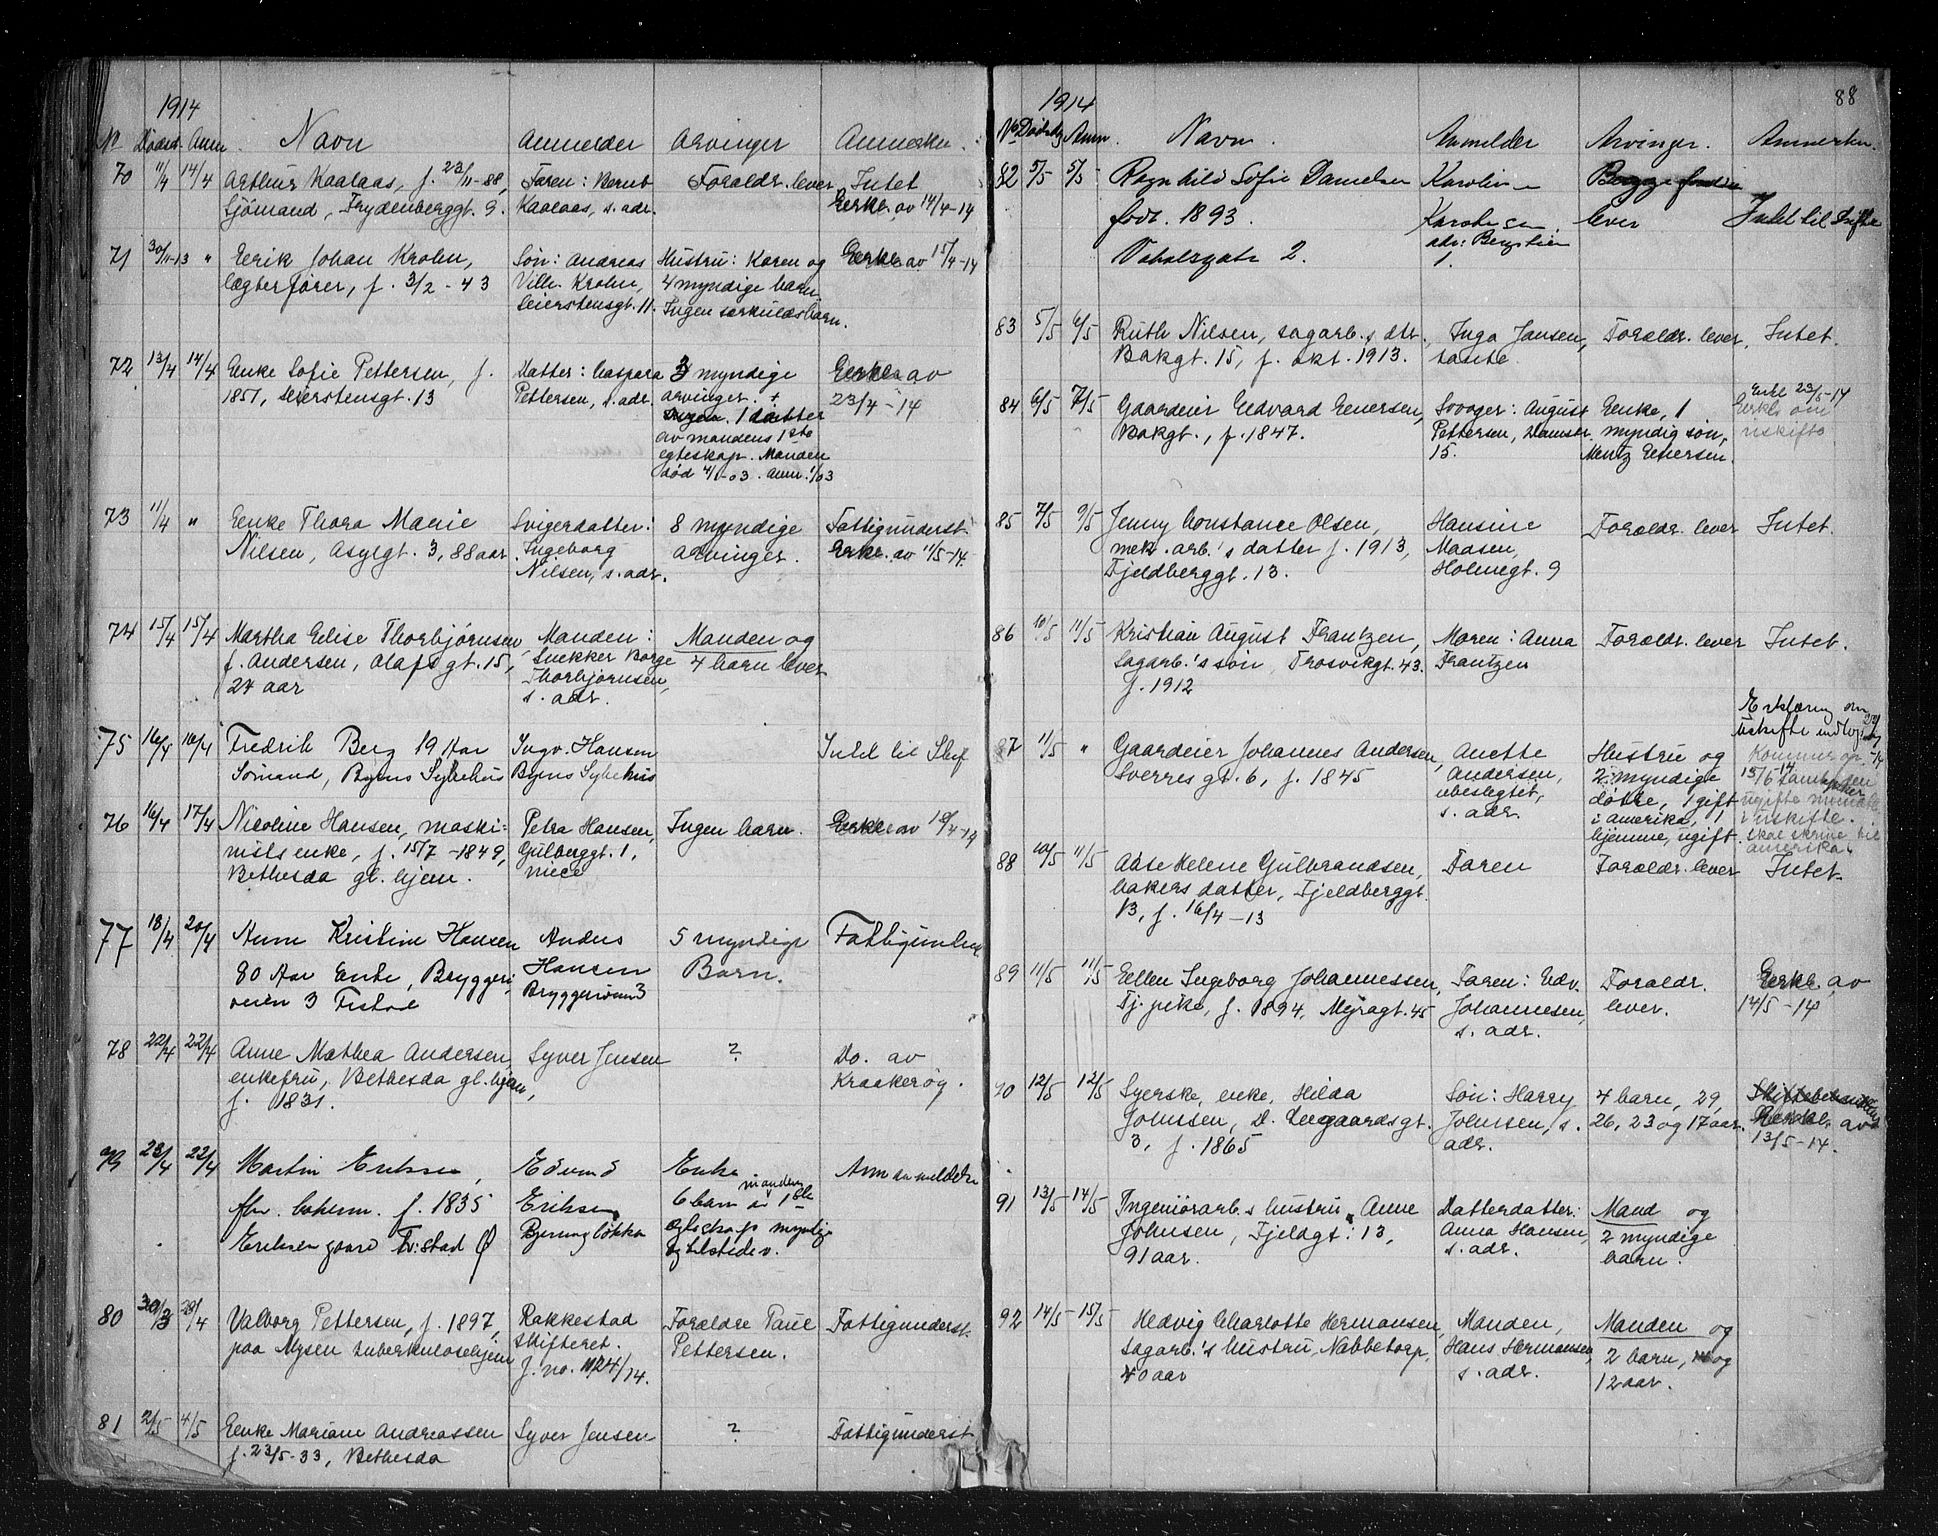 1914
No Dødsd. Anm. Navn Anmelder Arvinger Anmerkn.
70 11/4 14/4 Arthur Kaalaas, f. 23/11-88, Faren: Bernt Foraldr. lever Intet
Sjömand, Frydenberggt. 9. Kaalaas, s. adr. Erkl. av 14/4-14
71 30/11-13 " Eerik Johan Krohn, Søn: Andreas Hustru: Karen og Erkl. av 15/4-14
lægterfører, f. 3/2-43 Vilh. Krohn, 4 myndige barn
Seierstensgt. 11. Ingen særkuldsbarn.
72 13/4 14/4 Enke Sofie Pettersen, f. Datter: Caspara 3 myndige Erkl. av
1851, Seierstensgt. 13 Pettersen, s. adr. arvinger. + 23/4-14
1 datter
av mandens 1ste
egteskap. Manden
død 4/1-03. Anm. 1/03
73 11/4 " Enke Thora Marie Svigerdatter: 8 myndige Fattigunderst.
Nilsen, Asylgt. 3, 88 aar Ingeborg arvinger. Erkl. av 11/5-14.
Nilsen, s. adr.
74 15/4 15/4 Martha Elise Thorbjørnsen, Manden: Manden og
f. Andersen, Olafsgt. 15, Snekker Borge 4 barn lever
27 aar Thorbjørnsen,
s. adr.
75 16/4 16/4 Fredrik Berg 19 Aar Ingv. Hansen Intet til Skif
Sømand, Byens Sykehus Byens Sykehus
76 16/4 17/4 Nicoline Hansen, maski- Petra Hansen, Ingen barn. Erkl. av
nists enke, f. 15/7-1849, Gulberggt. 1,
Bethesda gl. hjem. niece
77 18/4 20/4 Anne Kristine Hansen Anders 5 myndige Fattigunderst
80 Aar Enke, Bryggeri- Hansen Barn.
veien 3 Bryggeriveien 3
78 22/4 22/4 Anne Mathea Andersen, Syver Jensen ? Do. av
enkefru, Bethesda gl. hjem, Kraakerøy.
f. 1831.
79 22/4 Martin Eriksen, Edvard Enke.
f. 1835 Eriksen 6 barn av mandens 1ste
Eriksengaard Fr:stad Ø Bjørneløkka
80 30/3 28/4 Valborg Pettersen, f. 1897, Rakkestad Forældre Paul Fattigunderst.
paa Mysen tuberkulosehjem skifteret. Pettersen.
J. no. 1124/14.
81 2/5 4/5 Enke Mariane Andreassen Syver Jensen ? Fattigunderst
f. 23/5-33, Bethesda
88
1914
No Dødsdag Anm. Navn. Anmelder Arvinger. Anmerkn.
82 5/5 5/5 Ragnhild Sofie Danielsen Karoline Begge foreldre
født. 1893. Karolesen lever Intet til Skifte
Vahalsgate 2. adr: Bergstien
1.
83 5/5 6/5 Ruth Nilsen, sagarb.s dtr. Inga Jansen, Foraldr. lever. Intet.
Bakgt. 15, f. okt. 1913. tante
84 6/5 7/5 Gaardeier Edvard Enersen, Svoger: August Enke, 1 Erkl 23/5-14
Bakgt., f. 1847. Pettersen, Damstr. myndig søn, Erkl. om
15. Mentz Enersen. uskifte
85 7/5 9/5 Jenny Constance Olsen, Hansine Foraldr. lever Intet.
mek. arb.'s datter f. 1913, Madsen,
Fjeldberggt. 13. Holmegt. 9
86 10/5 11/5 Kristian August Frantzen, Moren: Anna Foraldr. lever Intet.
Sagarb.'s søn, Trosvikgt. 43. Frantzen
f. 1912
Erklæring om
uskifte
87 11/5 " Gaardeier Johannes Andersen, Anette Hustru og
Sverresgt. 6, f. 1845 Andersen, 2 myndige
ubeslegtet, døtre, 1 gift
s. adr. i Amerika, 1 i uskifte.
hjemme, ugift. skal skrive til
Amerika.
88 10/5 11/5 Aase Helene Gulbrandsen, Faren Foraldr. lever Intet.
bakers datter, Fjeldberggt.
13, f. 16/4-13
89 11/5 11/5 Ellen Ingeborg Johannessen, Faren: Edv. Foraldr. Erkl. av
Tj. pike, f. 1894, Mejragt. 45 Johannesen, lever. 14/5-14
s. adr.
90 12/5 12/5 Syerske, enke, Hilda Søn: Harry 4 barn, 29,
Johnsen, D. Leegaardsgt. Johnsen, s. 26, 23 og 17 aar. av
3, f. 1865 adr. 13/5-14.
91 13/5 14/5 Ingeniörarb.s hustru, Anne Datterdatter: Mand og
Johnsen, Fjeldgt. 13, Anna Hansen, 2 myndige
91 aar. s. adr. barn.
92 14/5 15/5 Hedvig Charlotte Hermansen, Manden, Manden og
sagarb.'s hustru, Nabbetorp, Hans Hermansen, 2 barn, og
40 aar s. adr. 12 aar.